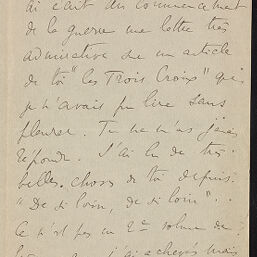 ai écrit au commencement
de la guerre une lettre très
admirative sur un article
de toi "les Trois Croix" que
je n'avais pu lire sans
pleurer. Tu ne m'as jamais
répondu. J'ai lu de très
belles choses de toi depuis.
"De si loin, de si loin"..
Ce n'est pas un 2me volume de
j'ai achevés mais